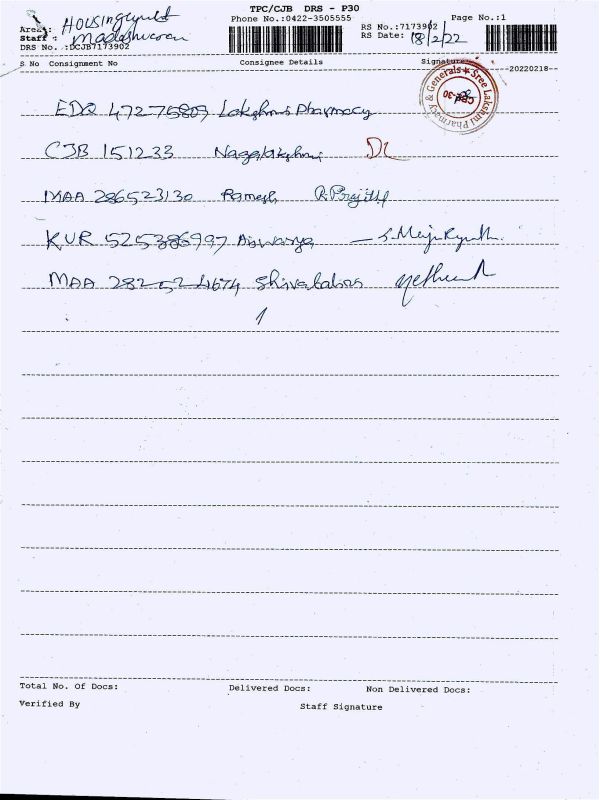 TPC/CJB DRS - P30
Phone No.:0422-3505555
Page No.:1
Area:
Staff :
DRS No. :DCJB7173902
RS No.:7173902
RS Date: 18/2/22
S No Consignment No
Consignee Details
Signature
20220218
Sree Lakshmi Pharmacy & Generals
EDQ 47276809 Lakshmi Pharmacy
CJB 151233 Nagalakshmi
MAA 286523130 Ramesh
KUR 525386997 Aiswarya
MAA 282524674
Total No. Of Docs:
Delivered Docs:
Non Delivered Docs:
Verified By
Staff Signature